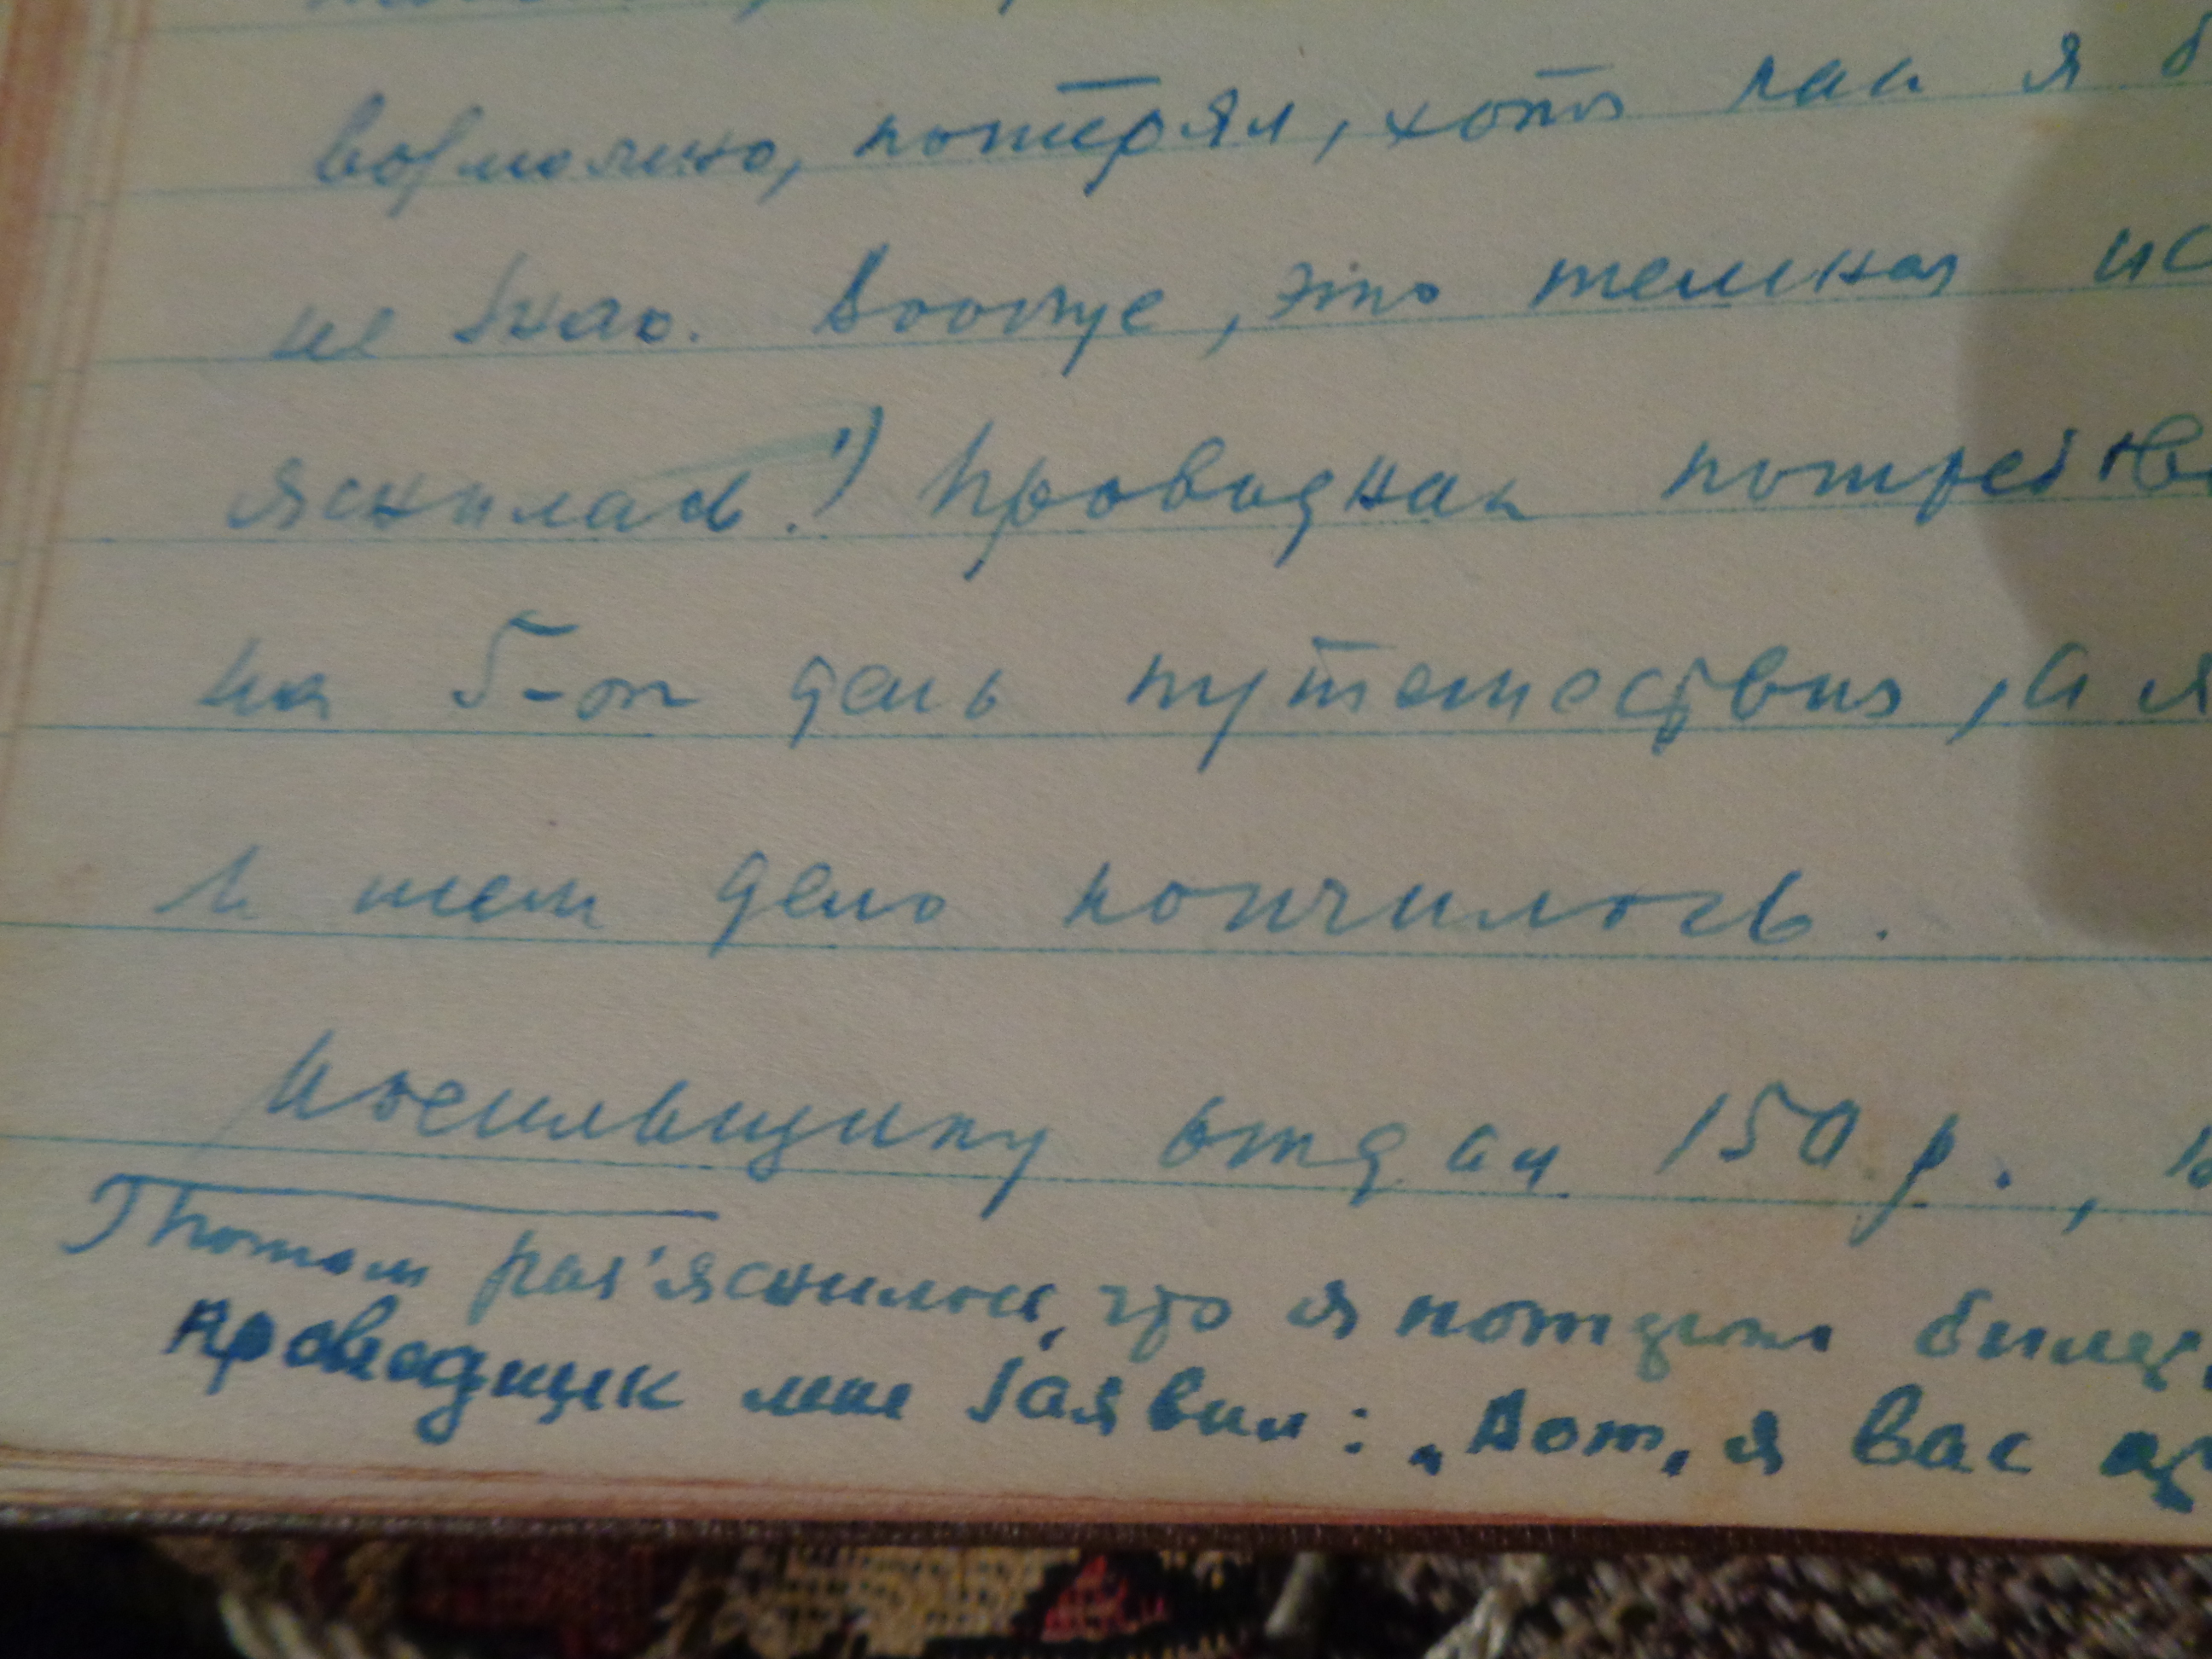 возможно, потерял, хотя как я
не знаю. Вообще, это темная ис
яснилась.¹) Проводник потребов
на 5-й день путешествия, а я
и тем дело кончилось.
Носильщику отдал 150 р.,
¹) Потом раз'яснилось, что я потерял билет,
проводник мне заявил: „Вот, я вас